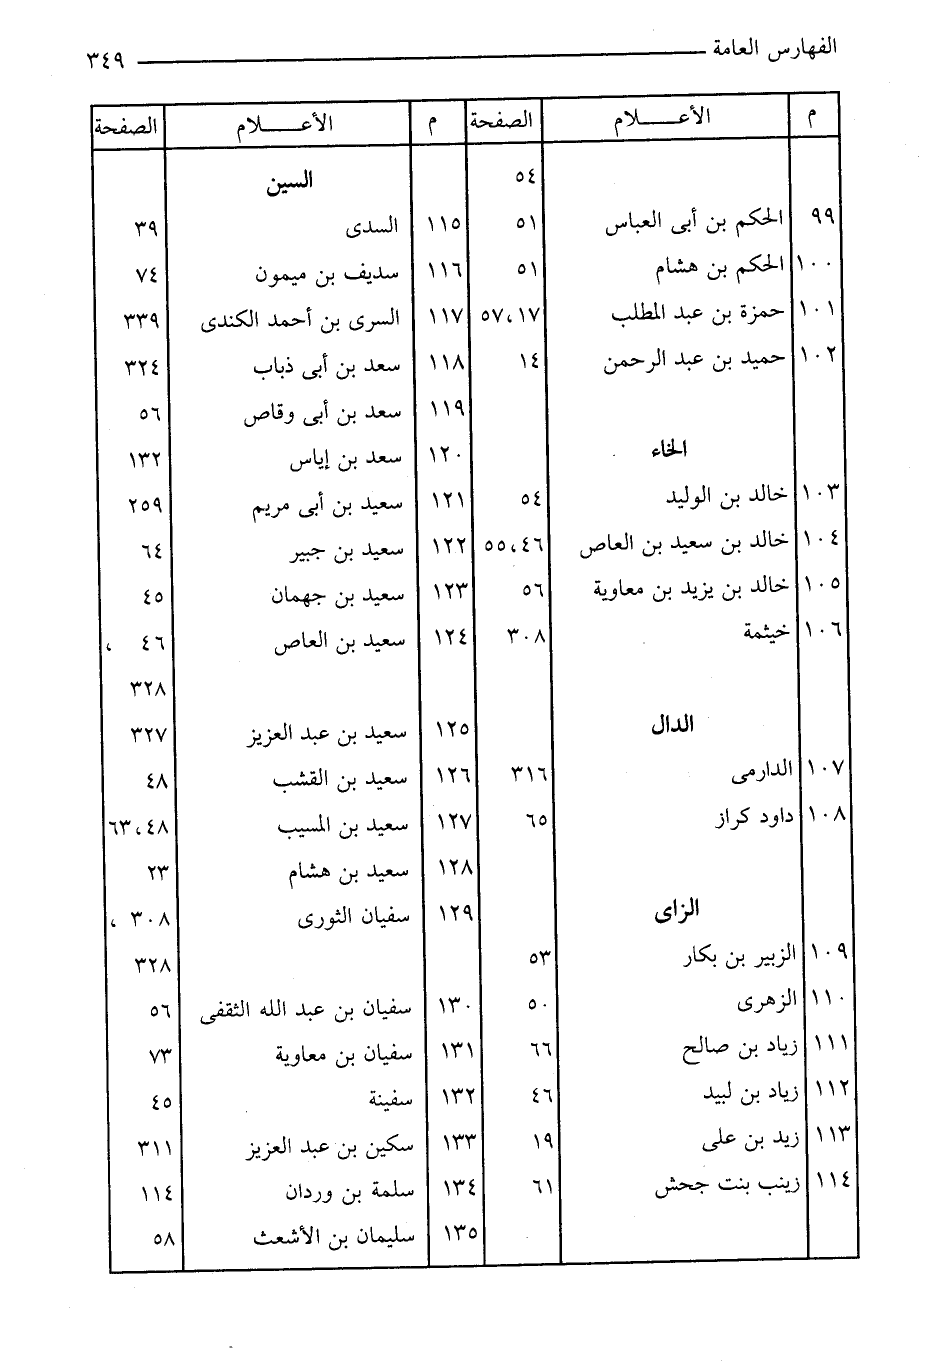 الفهارس العامة ٣٤٩
م الأعـــــلام الصفحة
٥٤
٩٩ الحكم بن أبى العباس ٥١
١٠٠ الحكم بن هشام ٥١
١٠١ حمزة بن عبد المطلب ٥٧،١٧
١٠٢ حميد بن عبد الرحمن ١٤
الخاء
١٠٣ خالد بن الوليد ٥٤
١٠٤ خالد بن سعيد بن العاص ٥٥،٤٦
١٠٥ خالد بن يزيد بن معاوية ٥٦
١٠٦ خيثمة ٣٠٨
الدال
١٠٧ الدارمى ٣١٦
١٠٨ داود كراز ٦٥
الزاى
١٠٩ الزبير بن بكار ٥٣
١١٠ الزهرى ٥٠
١١١ زياد بن صالح ٦٦
١١٢ زياد بن لبيد ٤٦
١١٣ زيد بن على ١٩
١١٤ زينب بنت جحش ٦١
م الأعـــــلام الصفحة
السين
١١٥ السدى ٣٩
١١٦ سديف بن ميمون ٧٤
١١٧ السرى بن أحمد الكندى ٣٣٩
١١٨ سعد بن أبى ذباب ٣٢٤
١١٩ سعد بن أبى وقاص ٥٦
١٢٠ سعد بن إياس ١٣٢
١٢١ سعيد بن أبى مريم ٢٥٩
١٢٢ سعيد بن جبير ٦٤
١٢٣ سعيد بن جهمان ٤٥
١٢٤ سعيد بن العاص ٤٦ ،
٣٢٨
١٢٥ سعيد بن عبد العزيز ٣٢٧
١٢٦ سعيد بن القشب ٤٨
١٢٧ سعيد بن المسيب ٦٣،٤٨
١٢٨ سعيد بن هشام ٢٣
١٢٩ سفيان الثورى ٣٠٨ ،
٣٢٨
١٣٠ سفيان بن عبد الله الثقفى ٥٦
١٣١ سفيان بن معاوية ٧٣
١٣٢ سفينة ٤٥
١٣٣ سكين بن عبد العزيز ٣١١
١٣٤ سلمة بن وردان ١١٤
١٣٥ سليمان بن الأشعث ٥٨